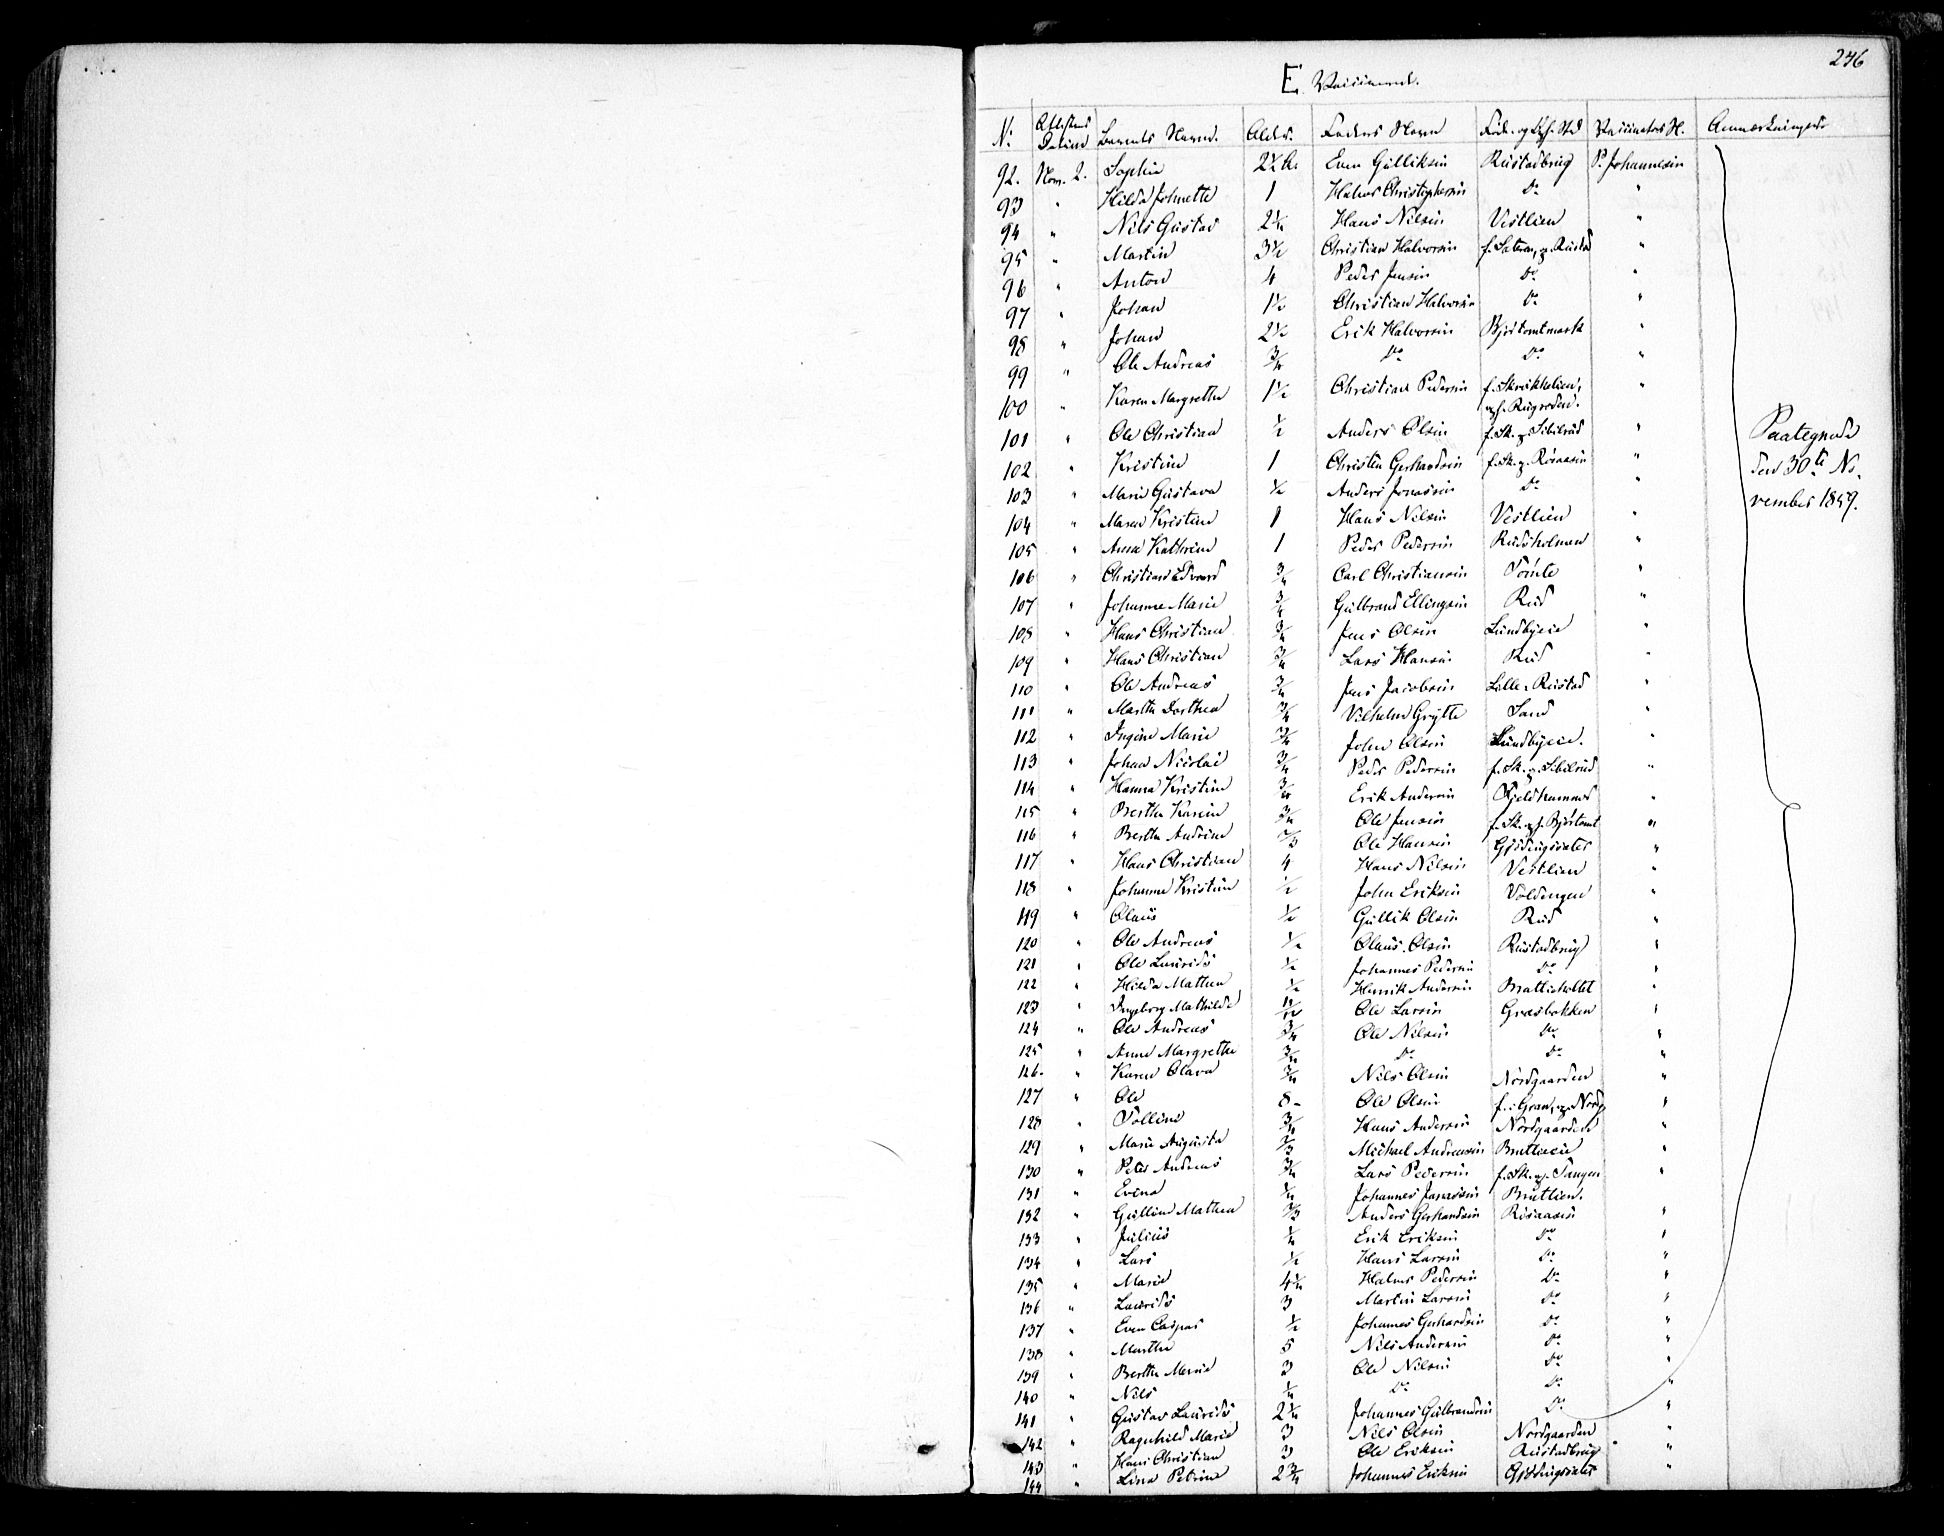 246
E. Vaccinerede.
No. Attestens Datum Barnets Navn. Alder. Faders Navn Føde- og Oph. Sted Vaccinators N. Anmærkninger
92. Nov. 2. Sophie 2 1/4 A. Even Gulliksen Rustadbrug P. Johannesen
93 " Hilda Johnette 1 Halvor Christophersen Do "
94 " Nils Gustav 2 1/4 Hans Nilsen Vestlien "
95 " Martin 3 1/2 Christian Halvorsen "
96 " Anton 4 Peder Jensen Do "
97 " Johan 1 1/2 Christian Halvorsen Do "
98 " Johan 2 1/2 Erik Halvorsen "
99 " Ole Andreas 3/4 Do Do "
100 " Karen Margrethe 1 1/2 Christian Pedersen "
101 " Ole Christian 1/2 Anders Olsen f. Sk. o. Sibilrud "
102 " Kristine 1 Christen Gerhardsen f. Sk. o. Rösaasen "
103 " Marie Gustava Anders Jonassen Do "
104 " Maren Kristine 1 Hans Nilsen Vestlien "
105 " Anne Kathrine 1 Peder Pedersen Rudsholmen "
106 " Christian Edvard 3/4 Carl Christiansen Tömte "
107 " Johanne Marie 3/4 Gulbrand Ellingsen Rud "
108 " Hans Christian 3/4 Jens Olsen Lundbyeie "
109 " Hans Christian 3/4 Lars Hansen Rud "
110 " Ole Andreas 3/4 Jens Jacobsen Lille-Rustad "
111 " Marthe Dorthea 3/4 Vilhelm Grytte Sand "
112 " Ingine Marie 3/4 John Olsen Lundbyeie. "
113 " Johan Nicolai 3/4 Peder Pedersen f. Sk. o. Sibilrud "
114 " Hanna Kristine 3/4 Erik Andersen Fjeldhammer "
115 " Berthe Karine 3/4 Ole Jensen "
116 " Berthe Andrine 2/3 Ole Hansen Gjödingsæter "
117 " Hans Christian 4 Hans Nilsen Vestlien "
118 " Johanne Kristine 1/2 John Eriksen Voldengen "
119 " Olaus 1/2 Gullik Olsen Rud "
120 " Ole Andreas Olaus Olsen Rustadbrug "
121 " Ole Laurids 1/2 Johannes Pedersen Do "
122 " Hilda Mathea 1/2 Henrik Andersen "
123 " Ingeborg Mathilde Ole Larsen Græsbakken "
124 " Ole Andreas 3/4 Ole Nilsen Do "
125 " Anne Margrethe 3/4 Do Do "
126. " Karen Olava 3/4 Nils Olsen Nordgaarden "
127 " Ole 8 - Ole Olsen f. i Gran, o. Nordg. "
128 " Tolline 3/4 Hans Andersen Nordgaarden "
129 " Marie Augusta 2/3 Michael Andreasen Bratlieeie "
130 " Peter Andreas 3/4 Lars Pedersen f. Sk. o. Tangen "
131 " Evina 1/4 Johannes Jonassen Bratlien.
132 " Gulline Mathea 2/3 Anders Gerhardsen Rösaasen "
133 " Julius 1/4 Erik Eriksen Do "
134 " Lars 1/2 Hans Larsen Do "
135 " Marie 4 1/4 Halvor Pedersen Do "
136 " Laurids 3 Martin Larsen Do "
137 " Even Casper 1/2 Johannes Gerhardsen Do "
138 " Marthe 5 Nils Andersen Do "
139 " Berthe Marie 3 Ole Nilsen Do "
140 " Nils 1/4 Do Do "
141 " Gustav Laurids 2 1/4 Johannes Gulbrandsen Do "
142 " Ragnhild Marie 3 Nils Olsen Nordgaarden "
143 " Hans Christian 3 Ole Eriksen Rustadbrug "
144 " Lina Petrine 2 3/4 Johannes Eriksen Gjödingsæter "
Paategnede
den 30te No-
vember 1859.